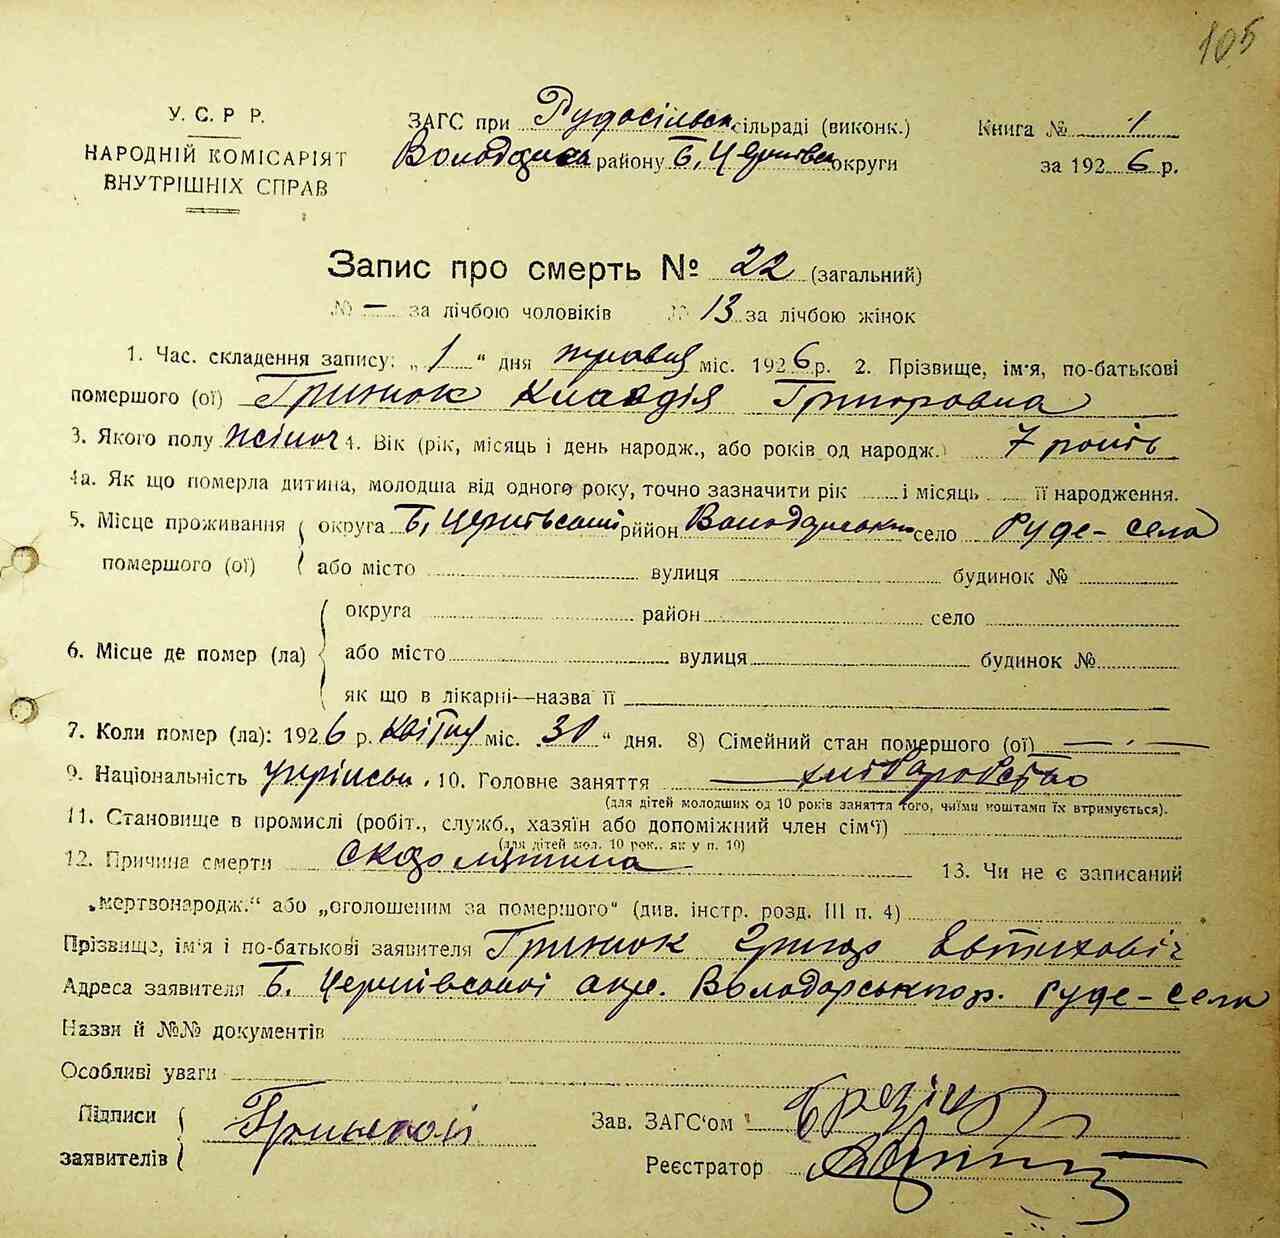 105
У. С. Р Р.
НАРОДНІЙ КОМІСАРІЯТ
ВНУТРІШНІХ СПРАВ
ЗАГС при Рудосільск сільраді (виконк.)
району Б, Церківськ округи
Книга № 1
за 1926 р.
Запис про смерть № 22 (загальний)
№ — за лічбою чоловіків № 13 за лічбою жінок
1. Час. складення запису: „1“ дня травня міс. 1926 р. 2. Прізвище, ім'я, по-батькові
помершого (ої) Гринюк Клавдія Григоровна
3. Якого полу жіноч 4. Вік (рік, місяць і день народж., або років од народж.) 7 років
4а. Як що померла дитина, молодша від одного року, точно зазначити рік і місяць її народження.
5. Місце проживання округа Б, Церківській рийон село Руде-село
помершого (ої) або місто вулиця будинок №
округа район село
6. Місце де помер (ла) або місто вулиця будинок №
як що в лікарні—назва її
7. Коли помер (ла): 1926 р. квітня міс. „30“ дня. 8) Сімейний стан помершого (ої) —
9. Національність 10. Головне заняття хліборобство
(для дітей молодших од 10 років заняття того, чиїми коштамп їх втримується).
11. Становище в промислі (робіт., служб., хазяїн або допоміжний член сім'ї)
(для дітей мол. 10 рок., як у п. 10)
12. Причина смерти 13. Чи не є записаний
„мертвонародж.“ або „оголошеним за помершого“ (див. інстр. розд. III п. 4)
Прізвище, ім'я і по-батькові заявителя Гринюк Григор Евтихович
Адреса заявителя Б. Церківської окр. Володарського р. Руде-село
Назви й №№ документів
Особливі уваги
Підписи
заявителів
Зав. ЗАГС'ом
Реєстратор